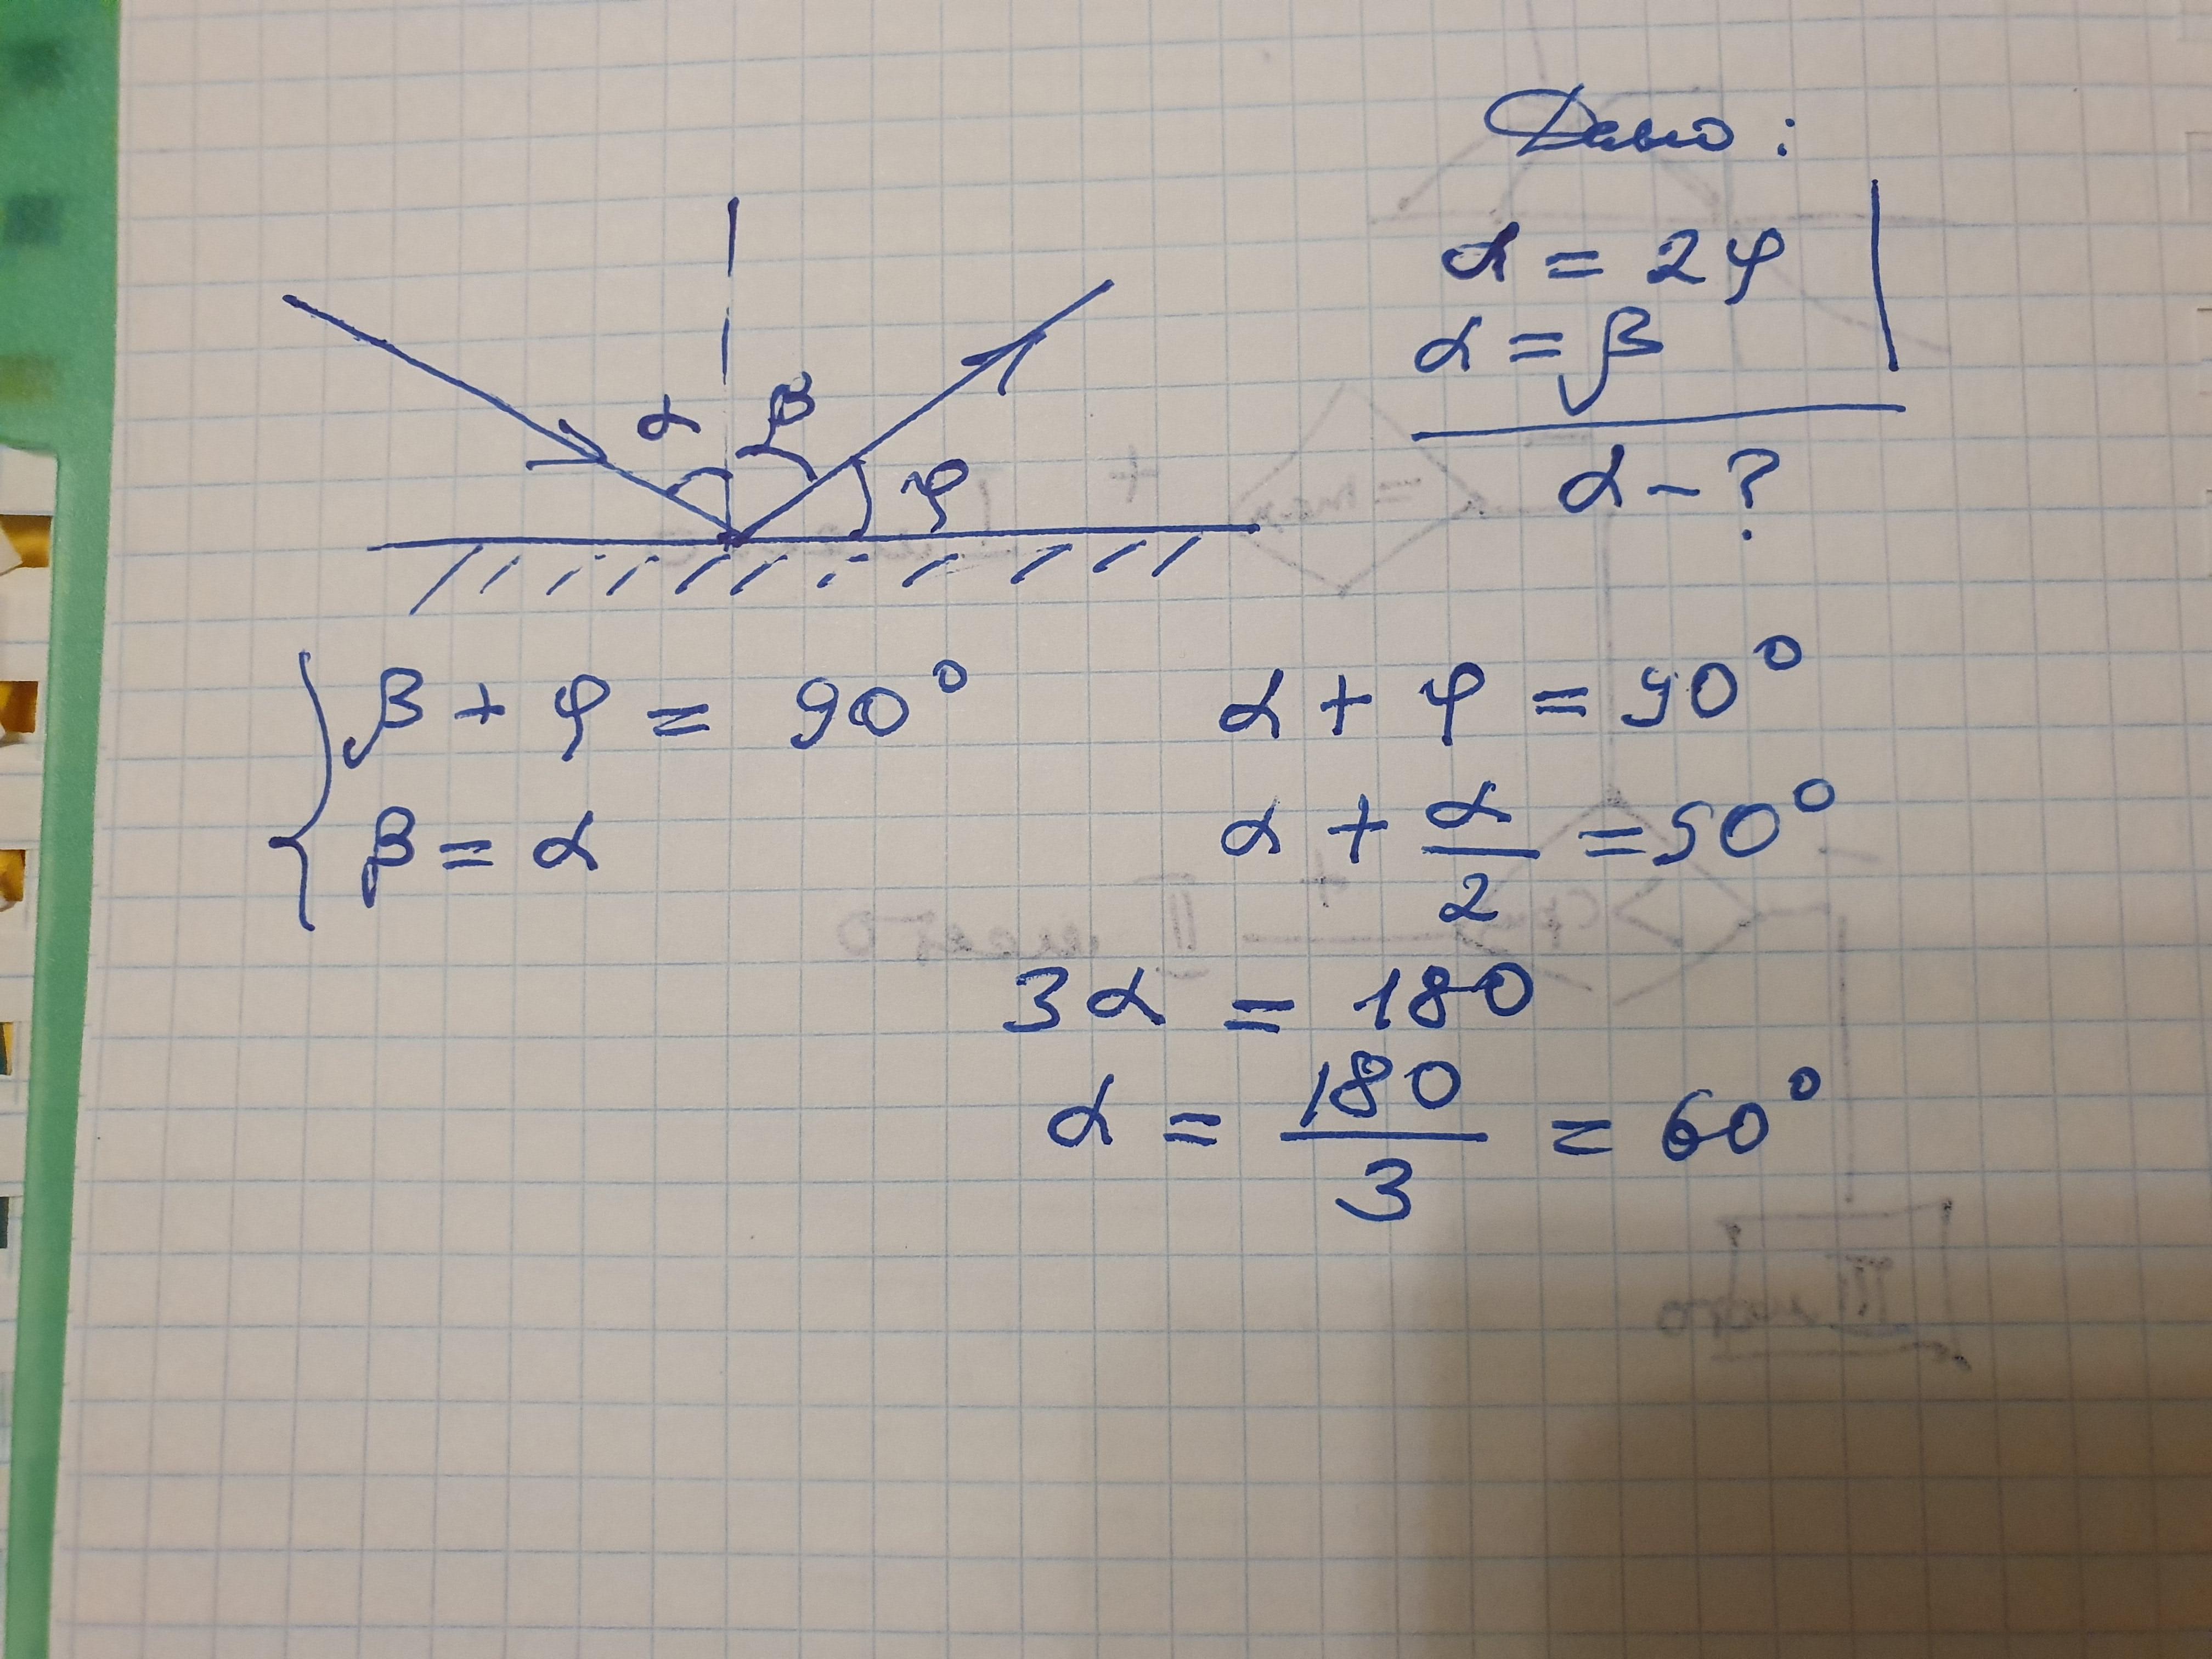 Дано:
α = 2φ
α = β
α - ?
α β φ
β + φ = 90°
β = α
α + φ = 90°
α + α/2 = 90°
3α = 180
α = 180/3 = 60°
II место